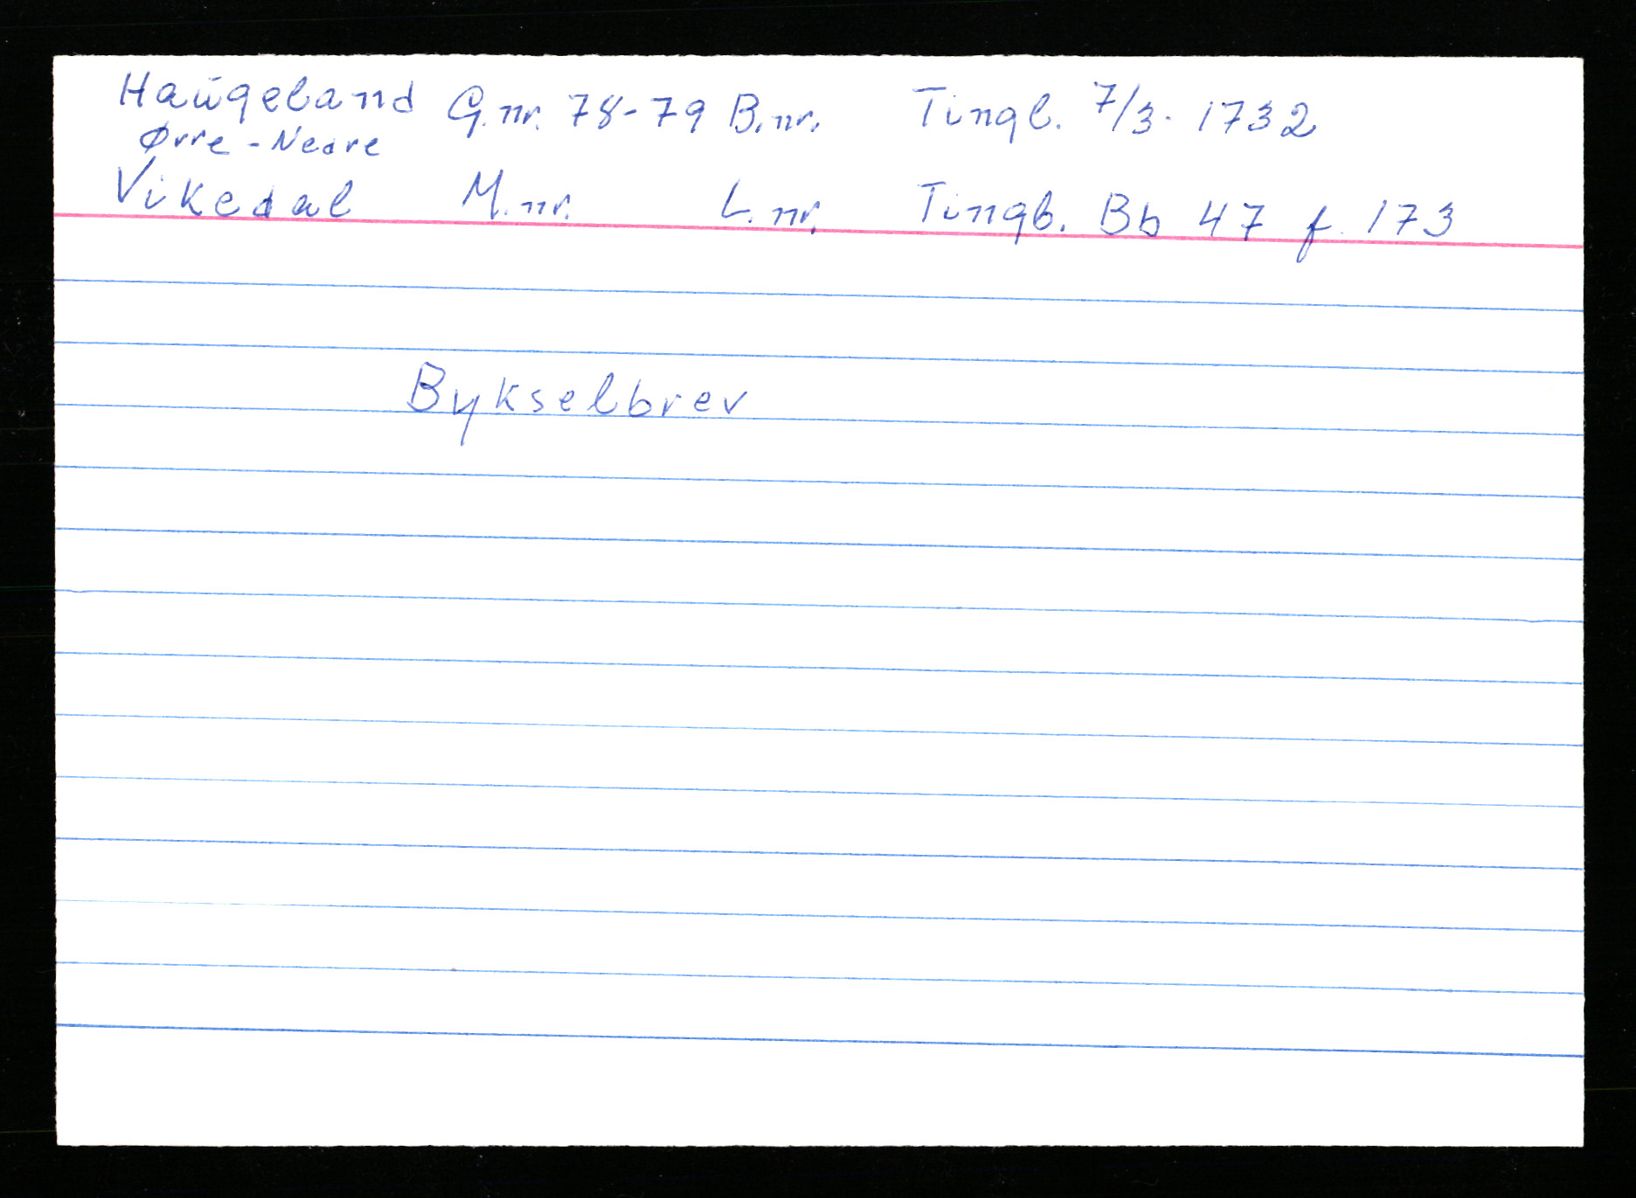 Haugeland G.nr. 78-79 B.nr. Tingl. 7/3. 1732
Øvre - Nedre
Vikedal M.nr. L.nr. Tingb. Bb 47 f. 173
Bykselbrev